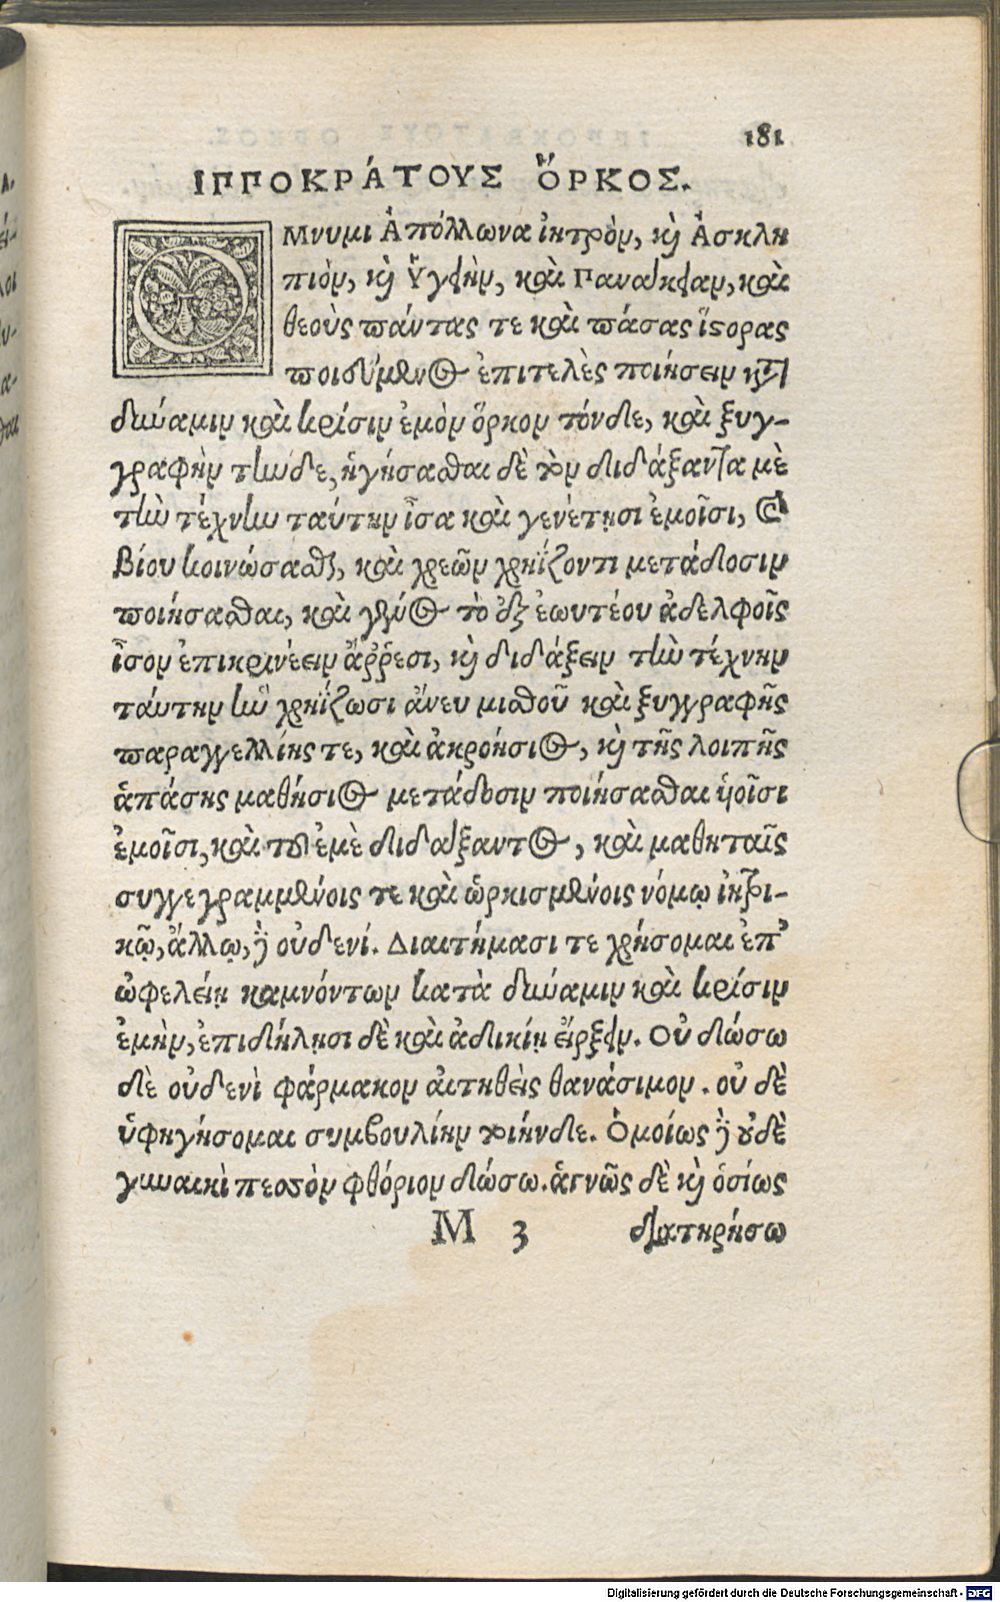 181
ΙΠΠΟΚΡΆΤΟΥΣ ὍΡΚΟΣ.
ΟΜνυμι Ἀπόλλωνα ἰητρὸν, κὶ Ἀσκλη
πιὸν, κὶ Ὑγείην, καὶ Πανάκειαν, καὶ
θεοὺς πάντας τε καὶ πάσας ἵστορας
ποιεύμενος ἐπιτελὲς ποιήσειν κτ
δύναμιν καὶ κρίσιν ἐμὸν ὅρκον τόνδε, καὶ ξυγ-
γραφὴν τήνδε, ἡγήσασθαι δὲ τὸν διδάξαντα μὲ
τὴν τέχνην ταύτην ἶσα καὶ γενέτησι ἐμοῖσι, καὶ
βίου κοινώσασθαι, καὶ χρεῶν χρηΐζοντι μετάδοσιν
ποιήσασθαι, καὶ γένος τὸ ἐξ ἑωυτέου ἀδελφοῖς
ἶσον ἐπικρινέειν ἄῤῥεσι, κὶ διδάξειν τὴν τέχνην
ταύτην ἢν χρηΐζωσι ἄνευ μισθοῦ καὶ ξυγγραφῆς
παραγγελλίης τε, καὶ ἀκροήσιος, κὶ τῆς λοιπῆς
ἁπάσης μαθήσιος μετάδοσιν ποιήσασθαι ὑοῖσι
ἐμοῖσι, καὶ τοῦ ἐμὲ διδάξαντος, καὶ μαθηταῖς
συγγεγραμμένοις τε καὶ ὡρκισμένοις νόμῳ ἰητρι-
κῷ, ἄλλῳ, ἢ οὐδενί. Διαιτήμασι τε χρήσομαι ἐπ'
ὠφελείῃ καμνόντων κατὰ δύναμιν καὶ κρίσιν
ἐμὴν, ἐπιδήλησι δὲ καὶ ἀδικίῃ εἴρξειν. Οὐ δώσω
δὲ οὐδενὶ φάρμακον αἰτηθεὶς θανάσιμον. οὐ δὲ
ὑφηγήσομαι συμβουλίην τοιήνδε. Ὁμοίως ἢ οὐδὲ
γυναικὶ πεσσὸν φθόριον δώσω. ἁγνῶς δὲ κὶ ὁσίως
M 3 διατηρήσω
Digitalisierung gefördert durch die Deutsche Forschungsgemeinschaft - DFG